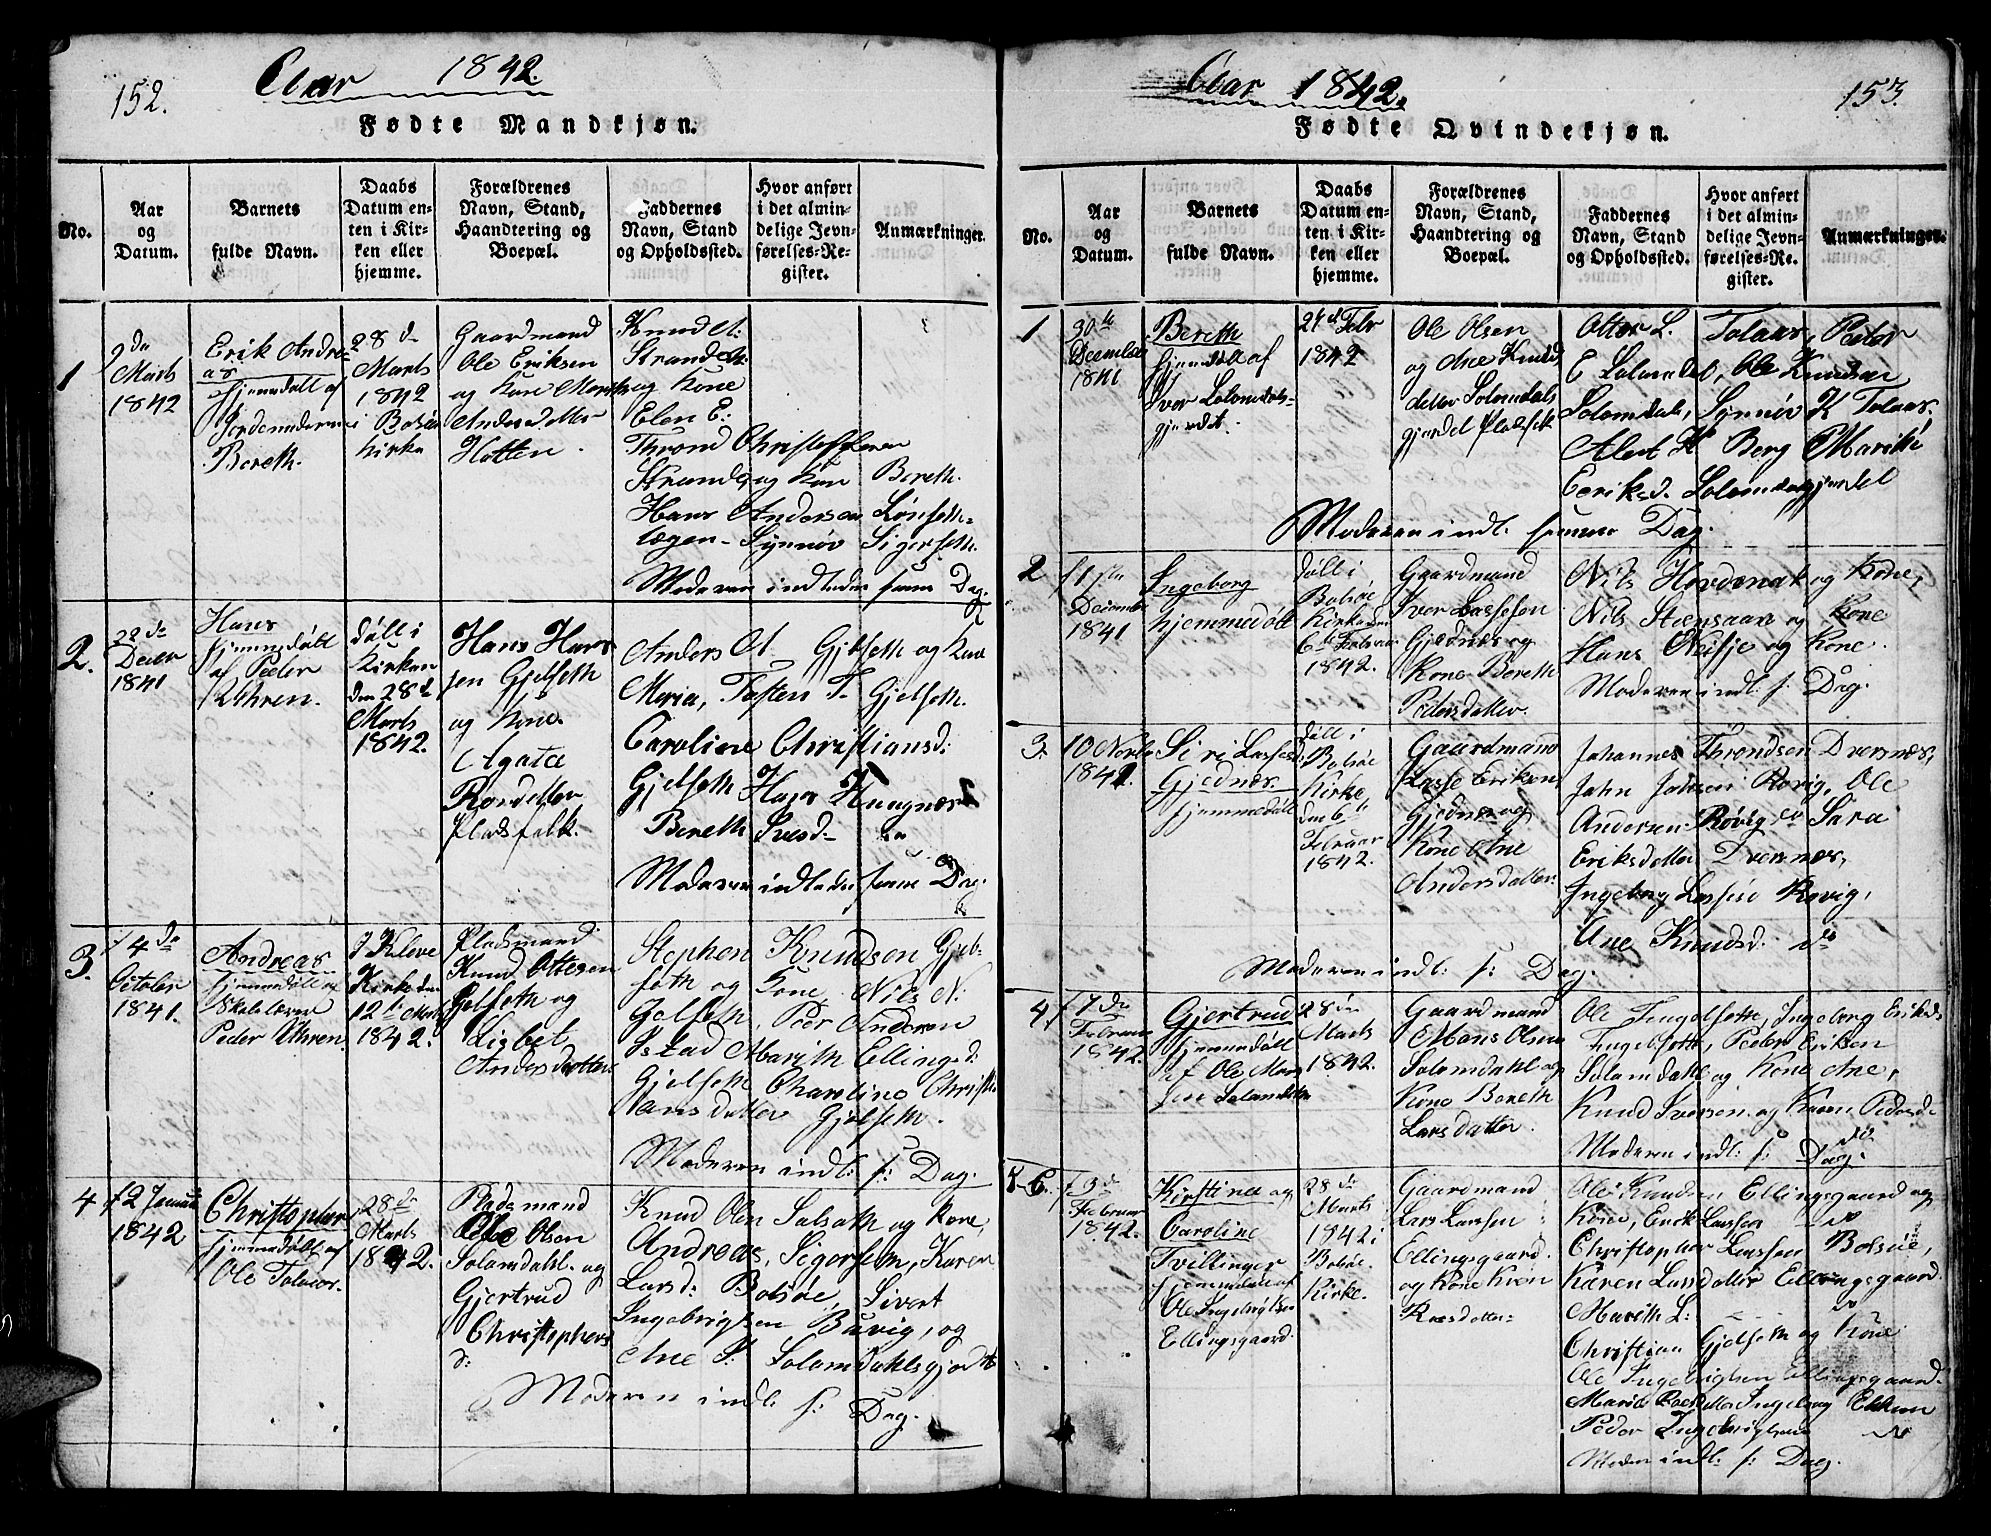 152.
Aar 1842.
Fødte Mandkjøn.
No.
Aar
og
Datum.
Barnets
fulde Navn.
Daabs
Datum en-
ten i Kir-
ken eller
hjemme.
Forældrenes
Navn, Stand,
Haandtering og
Boepæl.
Faddernes
Navn, Stand
og Opholdssted.
Hvor anført
i det almin-
delige Jevn-
førelses-Re-
gister.
Anmærkninger.
1
2 da
Marts
1842
Erik Andre-
as
hjemmedøbt af
Jordemoderen
Bereth.
28 de
Marts
1842
i Bolsøe
Kirke
Gaardmand
Ole Eriksen
og Kone Mereth
Andersdatter
Hatten.
Knud A:
Strande
og Kone
Elen E:
Thrond Christophersen
Strande og Kone Bereth.
Hans Andersen Lønseth-
lægen - Synnøv Sigerseth.
Moderen indledes samme Dag.
2.
28 de
Decbr
1841
Hans
hjemmedøbt
af Peder
Uthren.
døbt i
Kirken
den 28de
Marts
1842.
Hans Hans
sen Gjelseth
og Kone
Agata
Roesdatter
Pladsfolk.
Anders A. Gjelseth og Kone
Maria, Tosten T. Gjelseth.
Caroline Christiansd:
Gjelseth Hans Haugnæs
Bereth Iversd
Moderen indledes samme Dag.
3.
14 de
October
1841.
Andreas
hjemmedøbt af
Skolelærer
Peder Uthren.
I Kleve
Kirke den
12te Marts
1842.
Pladsmand
Knud Ottesen
Gjelseth og
Lisbet
Andersdatter
Stephen Knudsen Gjel-
seth og Kone, Nils N:
Gjelseth, Peer Andersen
Istad Marith Ellingsd
Gjelseth Charoline Christi
ansdatter Gjelseth.
Moderen indl: s: Dag.
4
12 Januar
1842
Christopher
hjemmedøbt af
Ole Tolaas.
28 de
Marts
1842.
Pladsmand
Ole Olsen
Solemdahl og
Gjertrud
Christophers
d:
Knud Olsen Solseth og Kone,
Andreas Sigerseth, Karen
Larsd: Bolsøe, Sivert
Ingebrigtsen Buvig, og
Ane P: Solemdahlsgjerdet
Moderen indl: s: Dag.
153.
Aar 1842.
Fødte Qvindekjøn.
No.
Aar
og
Datum.
Barnets
fulde Navn.
Daabs
Datum en-
ten i Kir-
ken eller
hjemme.
Forældrenes
Navn, Stand,
Haandtering og
Boepæl.
Faddernes
Navn, Stand
og Opholdssted.
Hvor anført
i det almin-
delige Jevn-
førelses-Re-
gister.
Anmærkninger.
1
30 te
Decembr
1841
Bereth
hjemmedøbt af
Iver Solemdals-
gjerdet.
27de Febr
1842
Ole Olsen
og Ane Knuds
datter Solemdals
gjerdet Pladsfolk
Otter L. Tolaas, Peder
E Solemdal, Ole Knudsen
Solemdal, Synnøv K Tolaas.
Alert H Berg Marithe
Eeriksd. Solemdagjerdet
Moderen indl: samme Dag.
2
11 te
December
1841
Ingeborg
hjemmedøbt
døbt i
Bolsøe
Kirke den
6te Februar
1842.
Gaardmand
Iver Lassesen
Gjednæs og
Kone Bereth
Pedersdatter.
Nils Hovdenak og Kone,
Nils Steensaas og Kone
Hans Neisje og Kone.
Moderen indl: s: Dag.
3.
10 Novbr
1841.
Siri Lassesd
Gjednæs.
hjemmedøbt
døbt i
Bolsøe
Kirke,
den 6te
Februar
1842.
Gaardmand
Lasse Eriksen
Gjednæs og
Kone Ane
Andersdatter.
Johannes Throndsen Dversnæs,
John Johnsen Røvig, Ole
Andersen Røvig, Sara
Eriksdatter Dversnæs,
Ingeborg Lassesd Røvig,
Ane Knudsd. do
Moderen indl: s: Dag.
4
17 de
Februar
1842.
Gjertrud
hjemmedøbt
af Ole Mons
sen Solemdahl
28 de
Marts
1842.
Gaardmand
Mons Olsen
Solemdahl og
Kone Bereth
Larsdatter.
Ole Fugelseth, Ingeborg Eriksd:
Fugelseth, Peder Eriksen
Solemdahl og Kone Ane,
Knud Iversen og Karen Pedersd:
do
Moderen indl: s: Dag.
5-6.
13 de
Februar
1842.
Kirstine og
Caroline
Tvillinger
hjemmedøbt af
Ole Ingebrigtsen
Ellingsgaard.
28 de
Marts
1842 i
Bolsøe
Kirke.
Gaardmand
Lars Larssen
Ellingsgaard
og Kone Kren
Roesdatter
Ole Knudsen Ellingsgaard og
Kone, Erik Larssen do
Christopher Larssen Bolsøe,
Karen Larsdatter Ellingsgaard
Marith L: do
Christian Gjelseth og Kone
Ole Ingebrigtsen Ellingsgaard
Maria Roesdatter Ingeborg
Peder Ingebrigtsen do
Moderen indl: s: Dag.